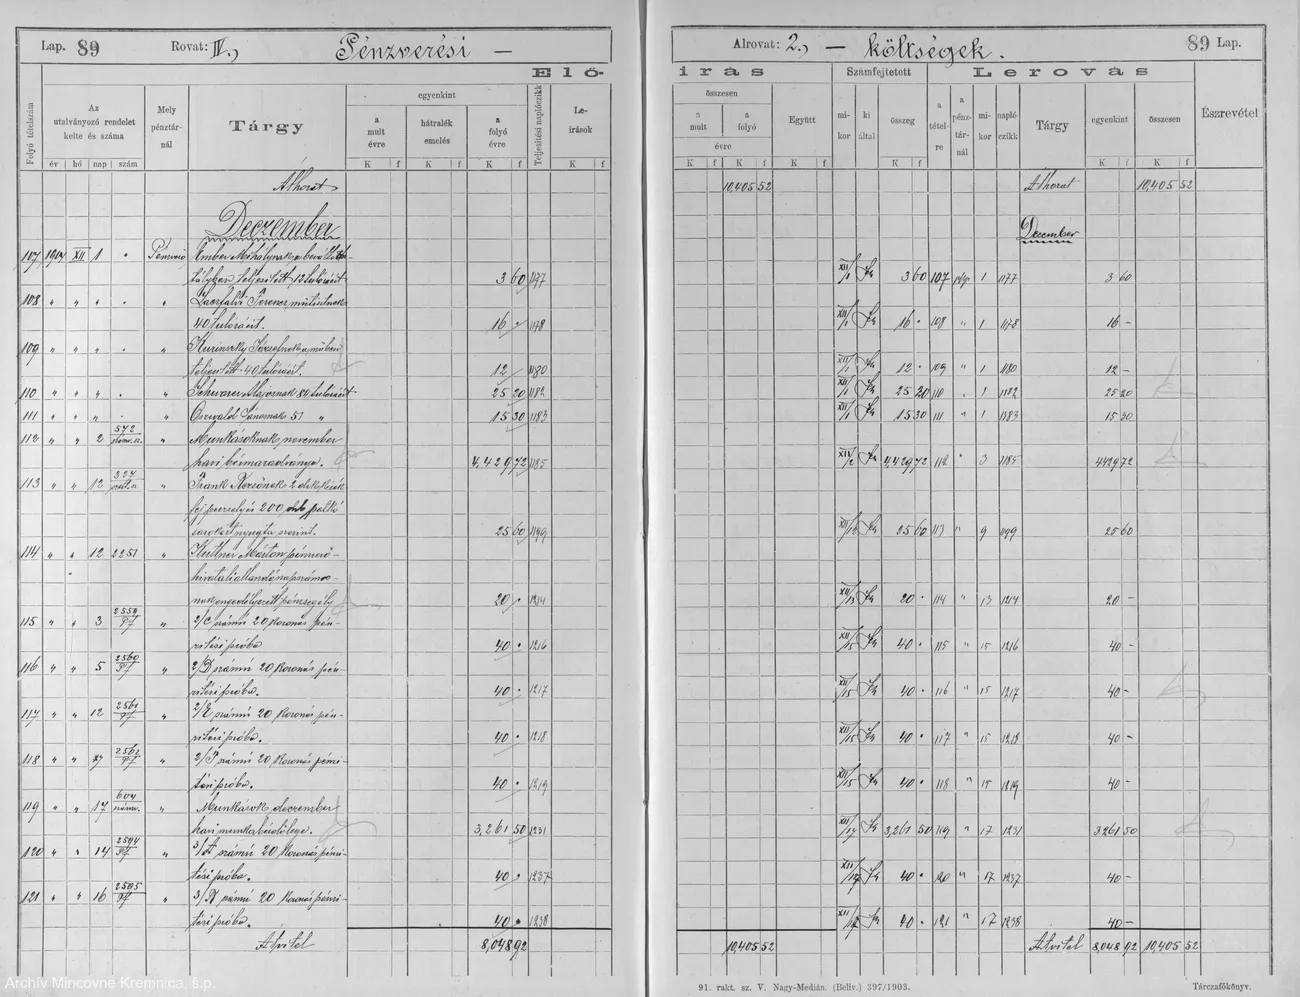 Lap. 89 Rovat: IV., Pénzverési —
Elő-
Folyó tételszám
Az utalványozó rendelet kelte és száma
év hó nap szám
Mely pénztárnál
Tárgy
egyenkint
a mult évre
hátralék emelés
a folyó évre
Teljesítési naplóczikk
Leírások
K f K f K f K f
Áthozat
Deczember
107 1907 XII 1 Pénzverő Ember Mihálynak a beváltó
tályban teljesített 12 túlóráért 3 60 1177
108 " " " " Ferencz
40 túlóráért. 16 1178
109 " " " " Kurinszky Józsefnek a
teljesített 40 túlóráért. 12 1180
110 " " " " Schwarcz Alajosnak 84 túlóráért 25 20 1182
111 " " " " Oszvald Jánosnak 51 " 15 30 1183
112 " " 2 572 " Munkásoknak november
havi bérmaradványa. 4,429 72 1185
113 " " 12 327 " Frank Rezsőnek 2
200
nyugta szerint. 25 60 1199
114 " " 12 2251 Márton pénzverő-
hivatali állandó napszámos-
nak engedélyezett pénzsegély 20 1214
115 " " 3 2559 " 2/C számú 20 koronás pén-
zitési próba 40 1216
116 " " 5 2560 " 2/D számú 20 koronás pén-
zitési próba. 40 1217
117 " " 12 2561 " 2/E számú 20 koronás pén-
zitési próba. 40 1218
118 " " 2562 " 2/F számú 20 koronás pénzi-
tési próba. 40 1219
119 " " 17 604 " Munkások deczember
havi munkabérelőlege. 3,261 50 1231
120 " " 14 2594 " 3/A számú 20 koronás pénzi-
tési próba. 40 1237
121 " " 16 2595 " 3/B számú 20 koronás pénzi-
tési próba. 40 1238
Átvitel 8,048 92
Alrovat: 2., — költségek. 89 Lap.
irás
Számfejtetett
Lerovás
összesen
a mult a folyó
évre
Együtt
mikor
ki által
összeg
a tételre
a pénztárnál
mikor
naplóczikk
Tárgy
egyenkint
összesen
Észrevétel
K f K f K f K f K f K f
10,405 52 Áthozat 10,405 52
December
XII/1 3 60 107 1 1177 3 60
XII/1 16 108 " 1 1178 16 –
XII/1 12 109 " 1 1180 12 –
XII/1 25 20 110 1 1182 25 20
XII/1 15 30 111 " 1 1183 15 30
XII/2 4,429 72 112 " 3 1185 4429 72
25 60 113 " 9 1199 25 60
XII/13 20 114 " 13 1214 20 –
XII/15 40 115 " 15 1216 40 –
XII/15 40 116 " 15 1217 40 –
XII/15 40 117 " 15 1218 40 –
XII/15 40 118 " 15 1219 40 –
XII/17 3,261 50 119 " 17 1231 3261 50
XII/17 40 120 " 17 1237 40 –
XII/17 40 121 " 17 1238 40 –
10,405 52 Átvitel 8,048 92 10,405 52
91. rakt. sz. V. Nagy-Medián. (Belív.) 397/1903.
Tárczafőkönyv.
Archív Mincovne Kremnica, š.p.